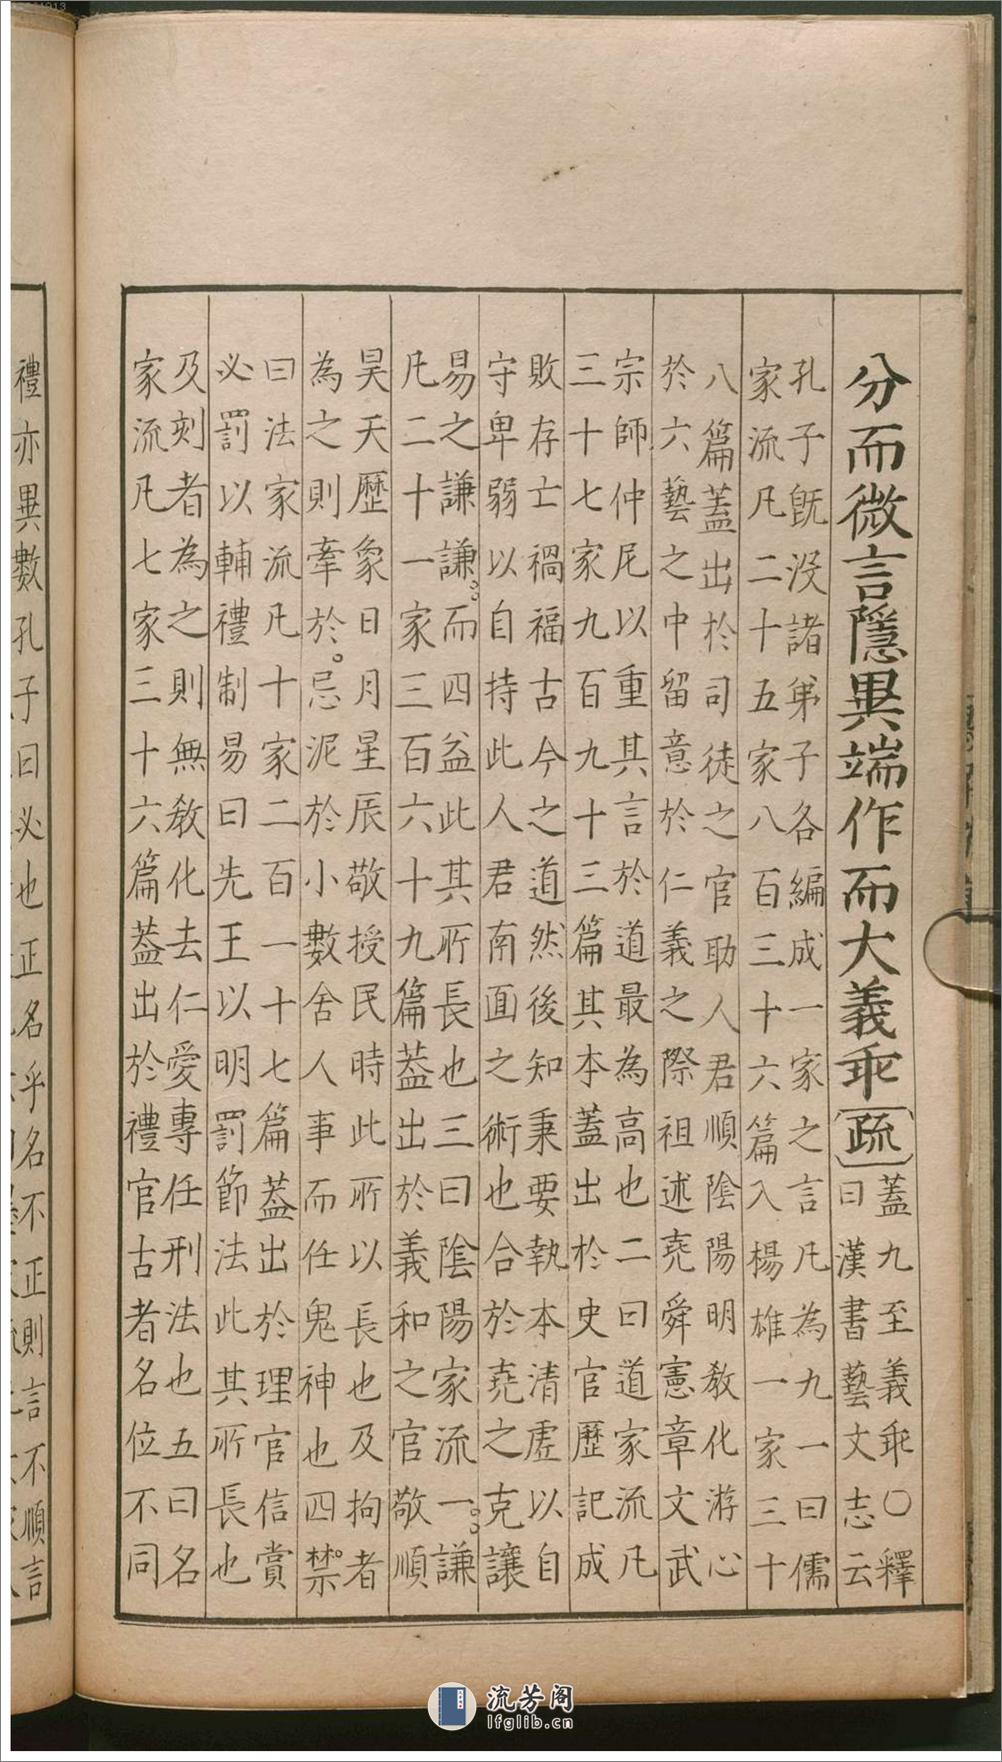 分而微言隱異端作而大義乖〔疏〕
蓋九至義乖〇釋
曰漢書藝文志云
孔子旣没諸弟子各編成一家之言凡為九一曰儒
家流凡二十五家八百三十六篇入楊雄一家三十
八篇蓋出於司徒之官助人君順陰陽明敎化游心
於六藝之中留意於仁義之際祖述堯舜憲章文武
宗師仲尼以重其言於道最為高也二曰道家流凡
三十七家九百九十三篇其本蓋出於史官歷記成
敗存亡禍福古今之道然後知秉要執本清虛以自
守卑弱以自持此人君南面之術也合於堯之克讓
易之謙謙而四益此其所長也三曰陰陽家流一謙
凡二十一家三百六十九篇蓋出於義和之官敬順
昊天歷象日月星辰敬授民時此所以長也及拘者
為之則牽於忌泥於小數舍人事而任鬼神也四禁
曰法家流凡十家二百一十七篇蓋出於理官信賞
必罰以輔禮制易曰先王以明罰節法此其所長也
及刻者為之則無敎化去仁愛專任刑法也五曰名
家流凡七家三十六篇蓋出於禮官古者名位不同
禮亦異數孔子曰必也正名乎名不正則言不順言
流芳阁
lfglib.cn